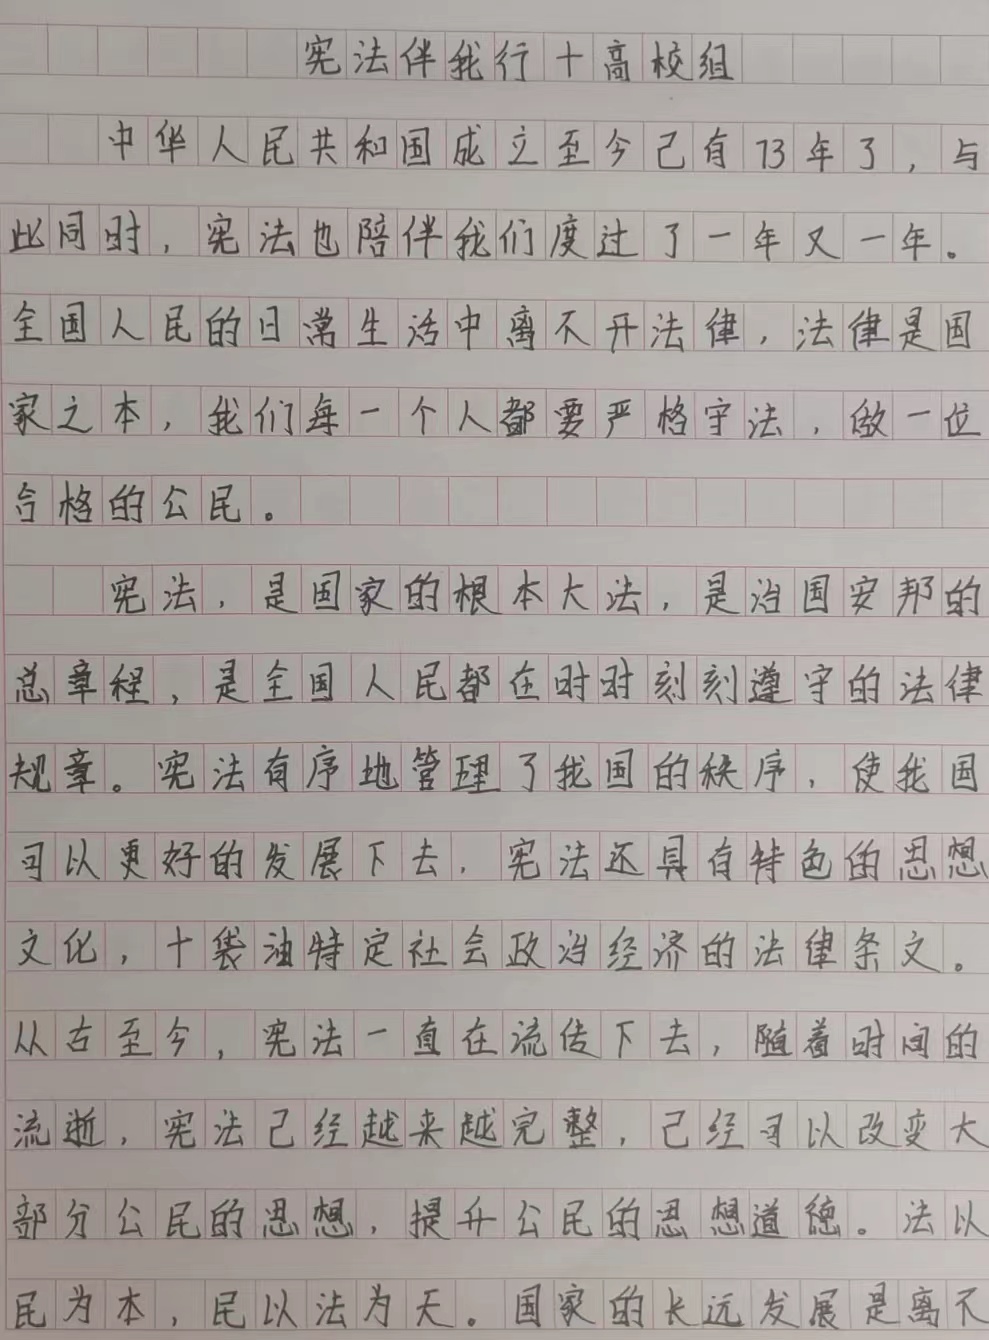 宪法伴我行十高校组
中华人民共和国成立至今已有73年了，与
此同时，宪法也陪伴我们度过了一年又一年。
全国人民的日常生活中离不开法律，法律是国
家之本，我们每一个人都要严格守法，做一位
合格的公民。
宪法，是国家的根本大法，是治国安邦的
总章程，是全国人民都在时时刻刻遵守的法律
规章。宪法有序地管理了我国的秩序，使我国
可以更好的发展下去，宪法还具有特色的思想
文化，十袋油特定社会政治经济的法律条文。
从古至今，宪法一直在流传下去，随着时间的
流逝，宪法已经越来越完整，已经可以改变大
部分公民的思想，提升公民的思想道德。法以
民为本，民以法为天。国家的长远发展是离不